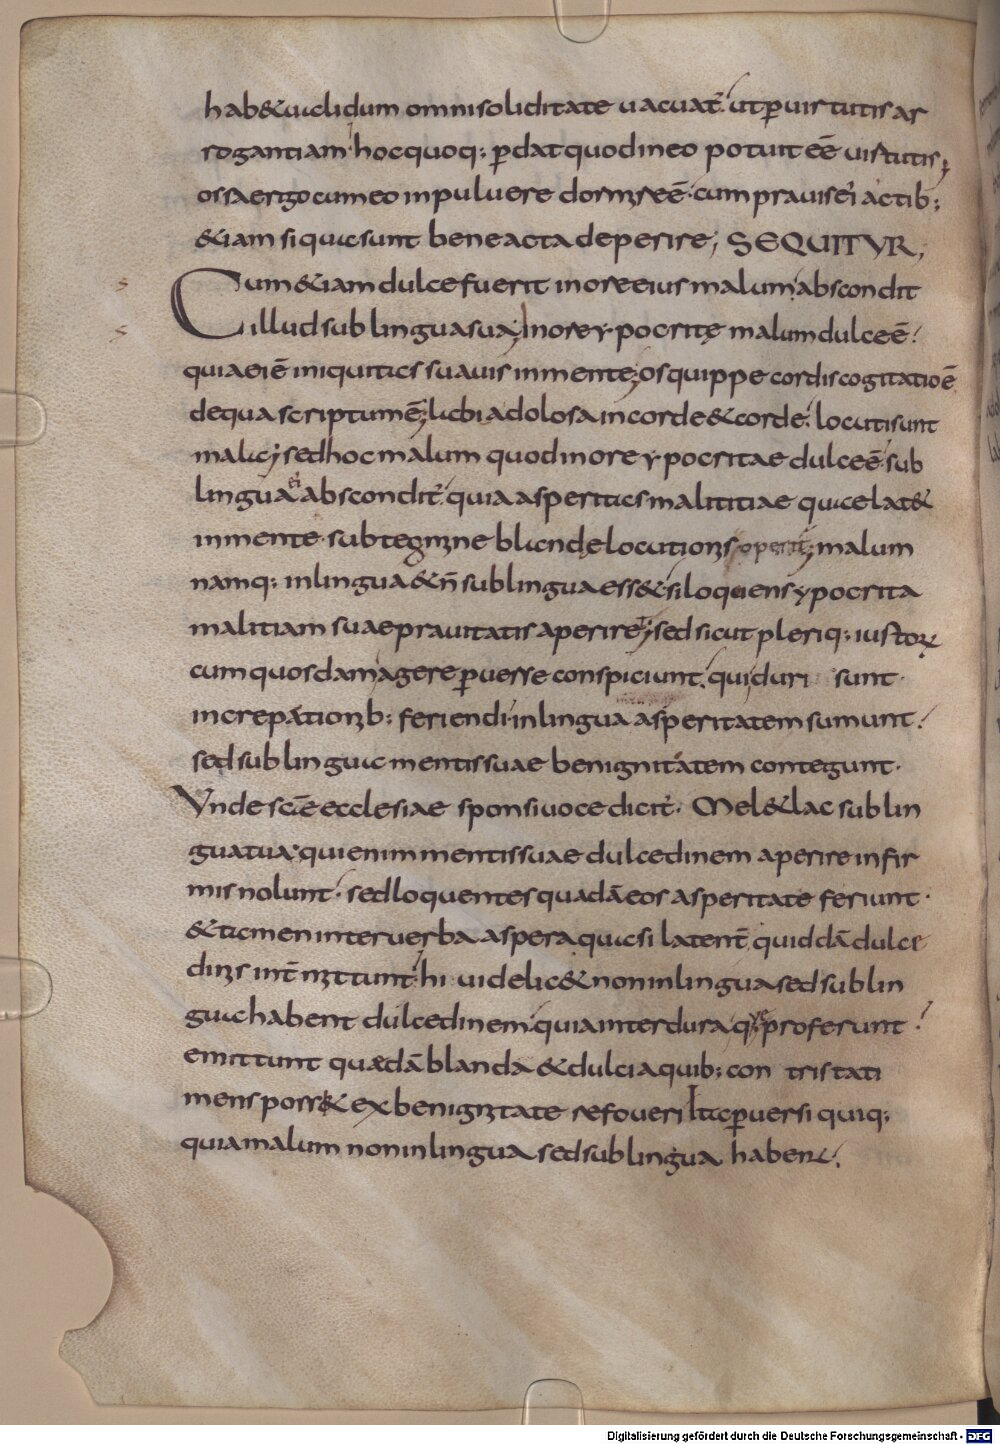 hab& ualidum omni soliditate uacuat᷑. ut ꝑ uirtutis ar
rogantiam hoc quoq; ꝑdat quod in eo potuit eē uirtutis;
ossa ergo cum eo in puluere dormire ē. cum prauis ei actib;
&iam si qua sunt bene acta deperire; SEQUITVR;
Cum &iam dulce fuerit in ore eius malum abscondit
illud sub lingua sua; In ore ypocritę malum dulce ē.
quia ei ē iniquitas suauis in mente; os quippe cordis cogitatio ē
de qua scriptum ē; labia dolosa in corde & corde. locuti sunt
mala; sed hoc malum quod in ore ypocritae dulce ē sub
lingua ei abscondit᷑. quia asperitas malititiae quae lat&
in mente sub tegmine blandę locutionis operit᷑; malum
namq; in lingua & ñ sub lingua ess& si loquens ypocrita
malitiam suae prauitatis aperiret; sed sicut pleriq; iustoꝝ
cum quosdam agere ꝑuerse conspiciunt. qui duri sunt
increpationib; feriendi in lingua asperitatem sumunt.
sed sub lingua mentis suae benignitatem contegunt.
Vnde scē ecclesiae sponsi uoce dicit᷑. Mel & lac sub lin
gua tua. qui enim mentis suae dulcedinem aperire infir
mis nolunt. sed loquentes quadā eos asperitate feriunt.
& tamen inter uerba aspera quasi latent᷑ quiddā dulce
dinis int᷑mittunt hi uidelic& non in lingua sed sub lin
gua habent dulcedinem. quia inter dura quę proferunt.
emittunt quaedā blanda & dulcia quib; con tristati
mens poss& ex benignitate refoueri Ita ꝑuersi quiq;
quia malum non in lingua sed sub lingua habent.
Digitalisierung gefördert durch die Deutsche Forschungsgemeinschaft - DFG